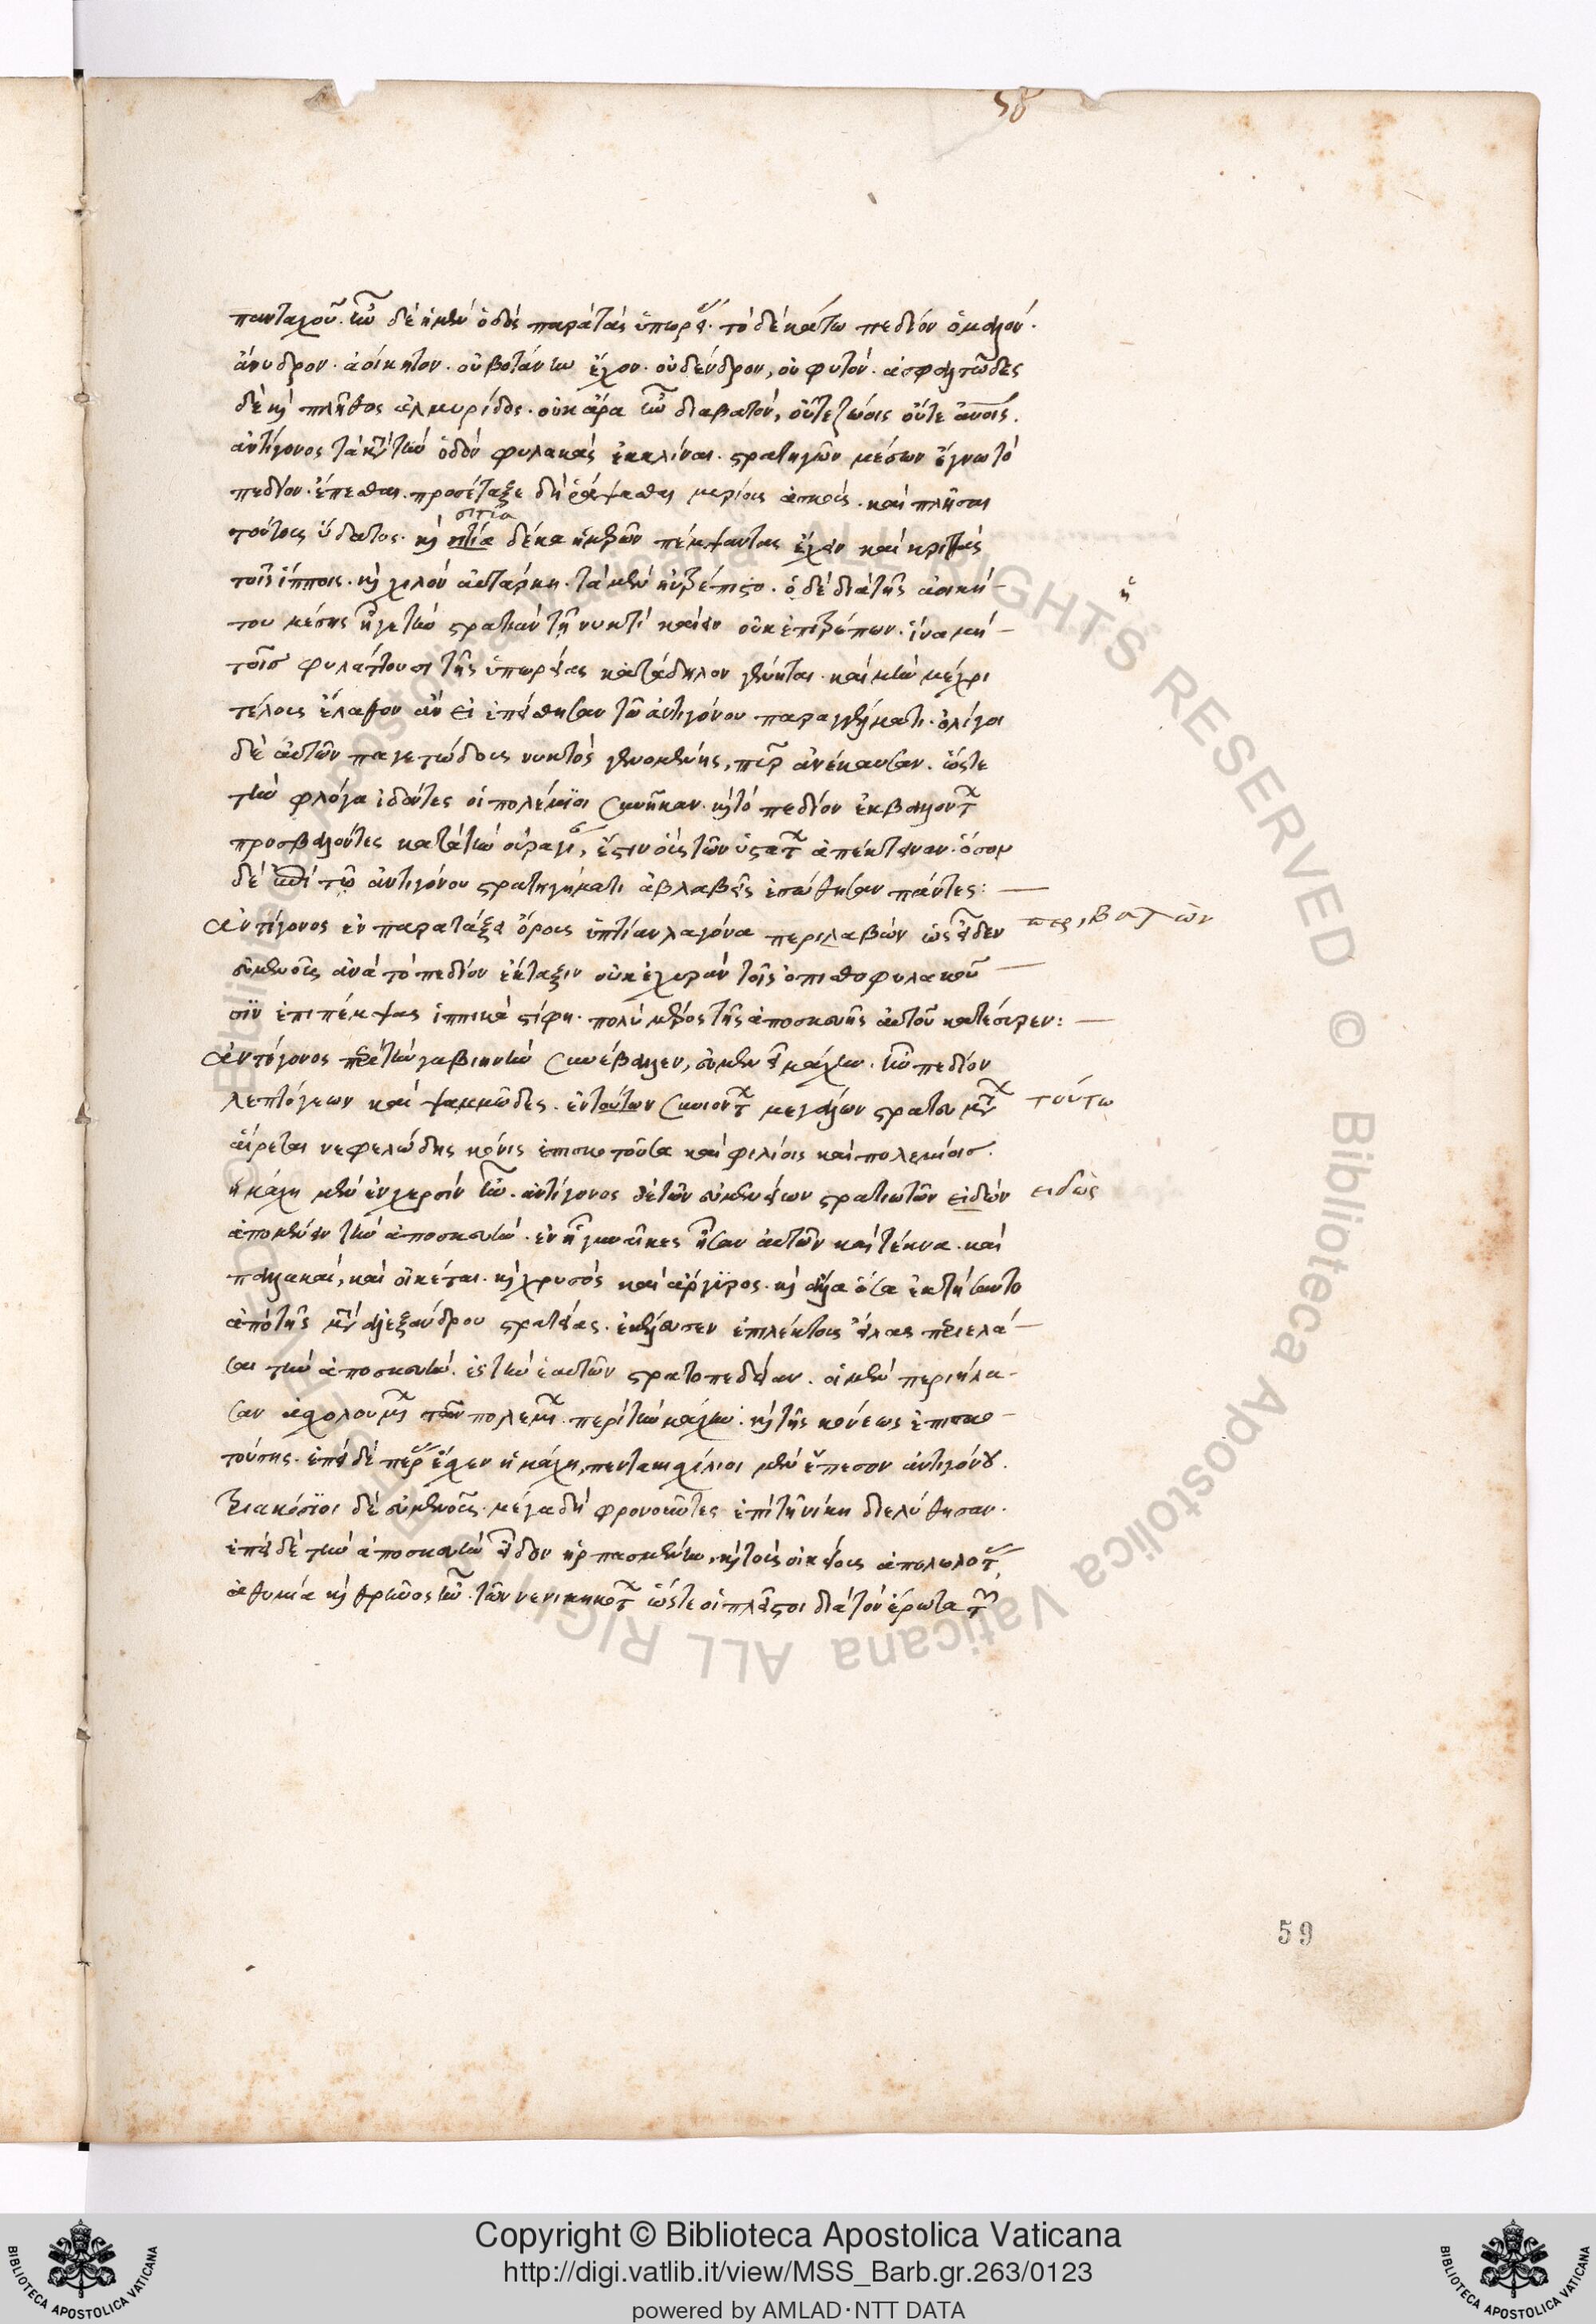 58
πανταχοῦ. ἦν δὲ ἡ μὲν ὁδὸς παρὰ τὰς ὑπωρείας. τὸ δὲ κάτω πεδίον ὁμαλόν.
ἄνυδρον. ἀοίκητον. οὐ βοτάνην ἔχον. οὐ δένδρον, οὐ φυτόν. ἀσφαλτῶδες
δὲ καὶ πλῆθος ἁλμυρίδος. οὐκ ἄρα ἦν διαβατόν, οὔτε ζώοις οὔτε ἀνοις.
ἀντίγονος τὰς κατὰ τὴν ὁδὸν φυλακὰς ἐκκλίναι. στρατηγῶν μέσων ἔγνω τὸ
πεδίον. προσέταξε δὴ ῥάψασθαι μυρίους ἀσκούς. καὶ πλῆσαι
τούτους ὕδατος. καὶ σιτία δέκα ἡμερῶν πέμψαντας ἔχειν καὶ κριθὰς
σιτία
τοῖς ἵπποις. καὶ χιλὸν αὐτάρκη. τὰ μὲν ηὐτρέπιστο. ὁ δὲ διὰ τῆς ἀοικήτου
ἢ
του μέσης ἦγε τὴν στρατιὰν τῇ νυκτὶ καίειν οὐκ ἐπιτρέπων. ἵνα μὴ
τοῖσ φυλάττουσι τῆς ὑπωρείας κατάδηλον γένηται. καὶ κἂν μέχρι
τέλους ἔλαθον ἂν εἰ ἐπείσθησαν τῷ ἀντιγόνου παραγγέλματι. ὀλίγοι
δὲ αὐτῶν παγετώδους νυκτὸς γενομένης, πῦρ ἀνέκαυσαν. ὥστε
τὴν φλόγα ἰδόντες οἱ πολέμιοι συνῆκαν. καὶ τὸ πεδίον ἐκβαλόντ
προσβαλόντες κατὰ τὴν οὐραγίαν, ἔστιν οὓς τῶν ὑστάτων ἀπέκτειναν. ὅσον
δὲ ἐπὶ τῷ ἀντιγόνου στρατηγήματι ἀβλαβεῖς ἐσώθησαν πάντες: —
ἀντίγονος ἐν παρατάξει ὄρους ὑπτίαν λαγόνα περιλαβὼν ὡς εἶδεν
περιβαλὼν
εὐμενοῦς ἀνὰ τὸ πεδίον ἔκταξιν οὐκ ἐχυρὰν τοῖς ὀπισθοφυλακοῦ —
σιν ἐπιπέμψας ἱππικὰ στίφη. πολὺ μέρος τῆς ἀποσκευῆς αὐτοῦ κατέσυρεν: —
ἀντίγονος περὶ τὴν γαβιηνὴν συνέβαλλεν, εὐμενεῖ μάχην. ἦν πεδίον
λεπτόγεων καὶ ψαμμῶδες. ἐν τούτων συνιόντων μεγάλων στρατευμάτων
τούτω
αἴρεται νεφελώδης κόνις ἐπισκοτοῦσα καὶ φιλίοις καὶ πολεμίοισ.
ἡ μάχη μὲν ἐν χερσὶν ἦν. ἀντίγονος δὲ τῶν εὐμενείων στρατιωτῶν εἰδὼν
ειδὼς
ἀπομένειν τὴν ἀποσκευὴν. ἐν ᾗ γυναῖκες ἦσαν αὐτῶν καὶ τέκνα. καὶ
παλλακαὶ, καὶ οἰκέται. καὶ χρυσὸς καὶ ἄργυρος. καὶ ἄλλα ὅσα ἐκτήσαντο
ἀπὸ τῆς μετὰ ἀλεξάνδρου στρατείας. ἐκέλευσεν ἐπιλέκτους ἴλας περιελά—
σαι τὴν ἀποσκευὴν. ἐς τὴν ἑαυτῶν στρατοπεδείαν. οἱ μὲν περιήλα—
σαν ἀσχολουμένων τῶν πολεμίων. περὶ τὴν μάχην. καὶ τῆς κόνεως ἐπισκο—
τούσης. ἐπεὶ δὲ πέρας ἔσχεν ἡ μάχη, πεντακισχίλιοι μὲν ἔπεσον ἀντιγόνου.
τριακόσιοι δὲ εὐμενοῦς. μέγα δὴ φρονοῦντες ἐπὶ τῇ νίκῃ διελύθησαν.
ἐπεὶ δὲ τὴν ἀποσκευὴν εἶδον ἡρπασμένην, καὶ τοὺς οἰκείους ἀπολωλότας,
ἀθυμία καὶ θρῆνος ἦν. τῶν νενικηκότων ὥστε οἱ πλεῖστοι διὰ τὸν ἔρωτα τῶν
59
Copyright © Biblioteca Apostolica Vaticana
http://digi.vatlib.it/view/MSS_Barb.gr.263/0123
powered by AMLAD·NTT DATA